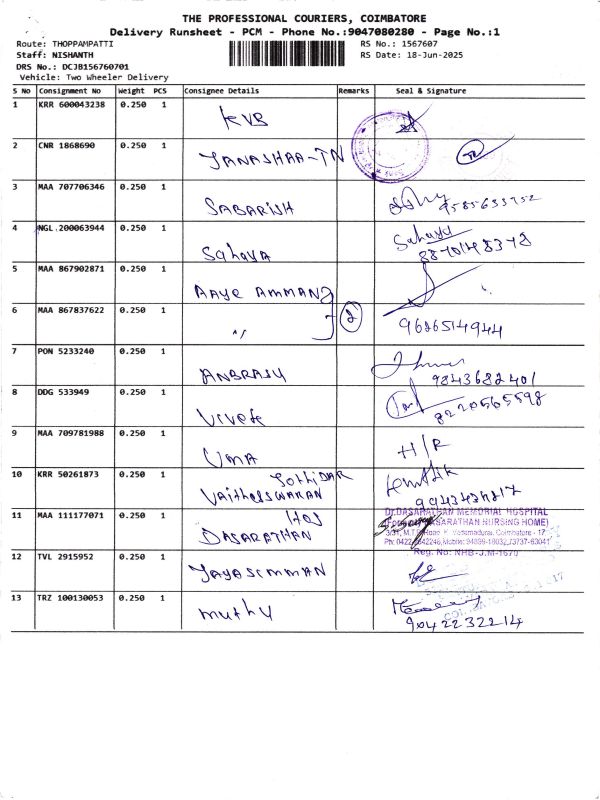 THE PROFESSIONAL COURIERS, COIMBATORE
Delivery Runsheet - PCM - Phone No.:9047080280 - Page No.:1
Route: THOPPAMPATTI
Staff: NISHANTH
DRS No.: DCJB156760701
Vehicle: Two Wheeler Delivery
RS No.: 1567607
RS Date: 18-Jun-2025
S No Consignment No Weight PCS Consignee Details Remarks Seal & Signature
1 KRR 600043238 0.250 1 KVB
2 CNR 1868690 0.250 1 JANASHAA-TN
3 MAA 707706346 0.250 1 SABARISH
4 NGL 200063944 0.250 1 Sahaya Sahaya
8870148378
5 MAA 867902871 0.250 1 AAYE AMMAN
6 MAA 867837622 0.250 1 〃 2 9626514944
7 PON 5233240 0.250 1 ANBRAJU
9843682401
8 DDG 533949 0.250 1 Vivek
8220565598
9 MAA 709781988 0.250 1 UMA H/R
10 KRR 50261873 0.250 1 JothiDAR
VAitheeswaran
11 MAA 111177071 0.250 1 Hos
DASARATHAN
Dr.DASARATHAN MEMORIAL HOSPITAL
DASARATHAN NURSING HOME)
Reg. No: NHB-J.M-1670
12 TVL 2915952 0.250 1 JAYASIMMAN
13 TRZ 100130053 0.250 1 muthu
9042232214